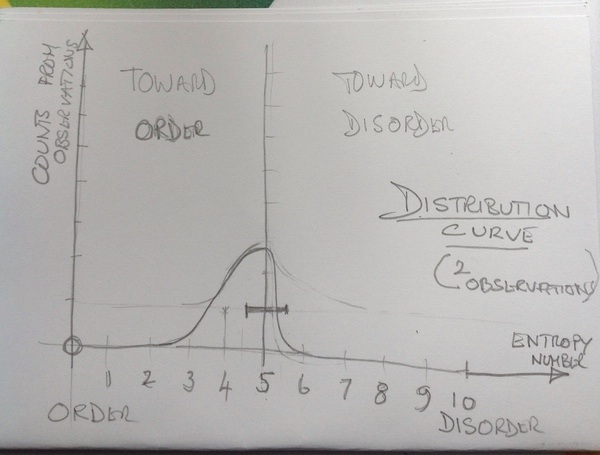 COUNTS FROM
OBSERVATIONS
TOWARD
ORDER
TOWARD
DISORDER
DISTRIBUTION
CURVE
(2
OBSERVATIONS)
ENTROPY
NUMBER
1 2 3 4 5 6 7 8 9 10
ORDER
DISORDER